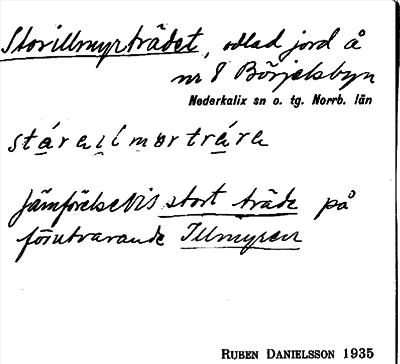 Storillmyrträdet, odlad jord å
nr 8 Börjelsbyn
Nederkalix sn o. tg. Norrb. län
stárailmørtrára
Jämförelsevis stort träde på
förutvarande Illmyren
RUBEN DANIELSSON 1935